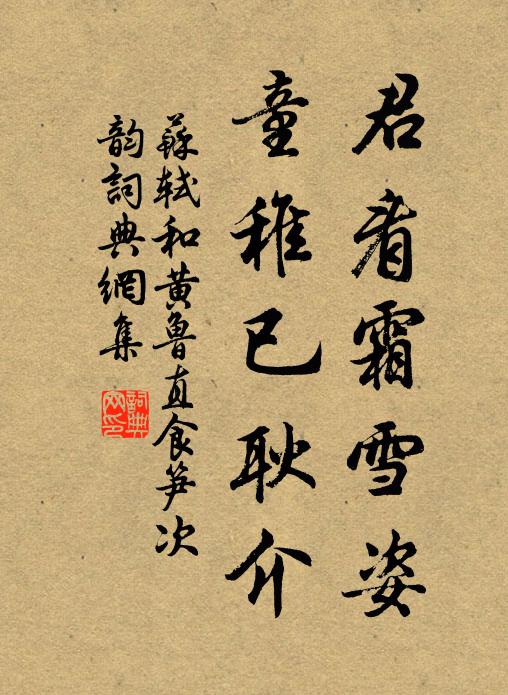 君看霜雪姿
童稚已耿介
蘇軾和黄魯直食笋次
韵詞典網集
詞典网印